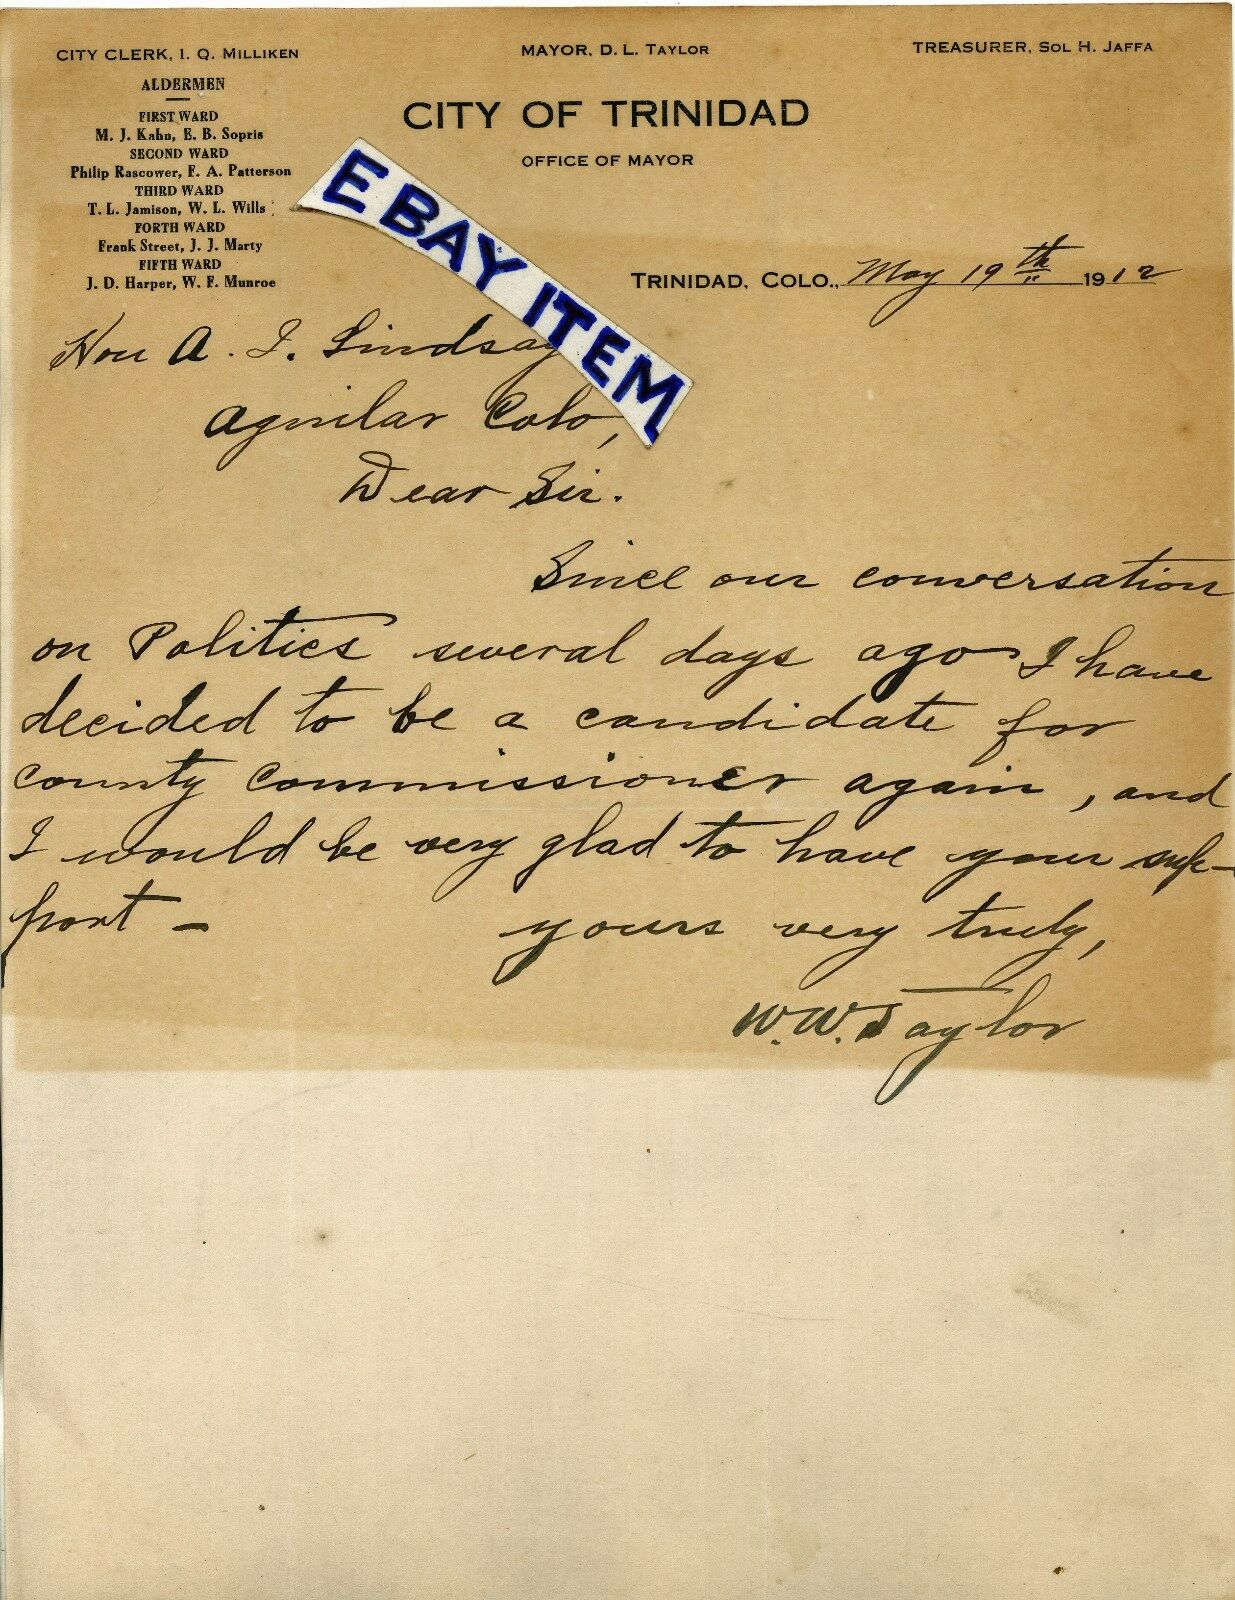 CITY CLERK, I. Q. MILLIKEN
MAYOR, D. L. TAYLOR
TREASURER, SOL H. JAFFA
ALDERMEN
FIRST WARD
M. J. Kahn, E. B. Sopris
SECOND WARD
Philip Rascower, F. A. Patterson
THIRD WARD
T. L. Jamison, W. L. Wills
FORTH WARD
Frank Street, J. J. Marty
FIFTH WARD
J. D. Harper, W. F. Munroe
CITY OF TRINIDAD
OFFICE OF MAYOR
EBAY ITEM
TRINIDAD, COLO., May 19th 1912
Hon A. I. Lindsay
Aguilar Colo,
Dear Sir.
Since our conversation
on Politics several days ago I have
decided to be a candidate for
County Commissioner again, and
I would be very glad to have your sup-
port -
yours very truly,
W. W. Taylor